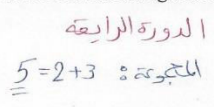 الدورة الرابعة
المجموعة : 3+2=5